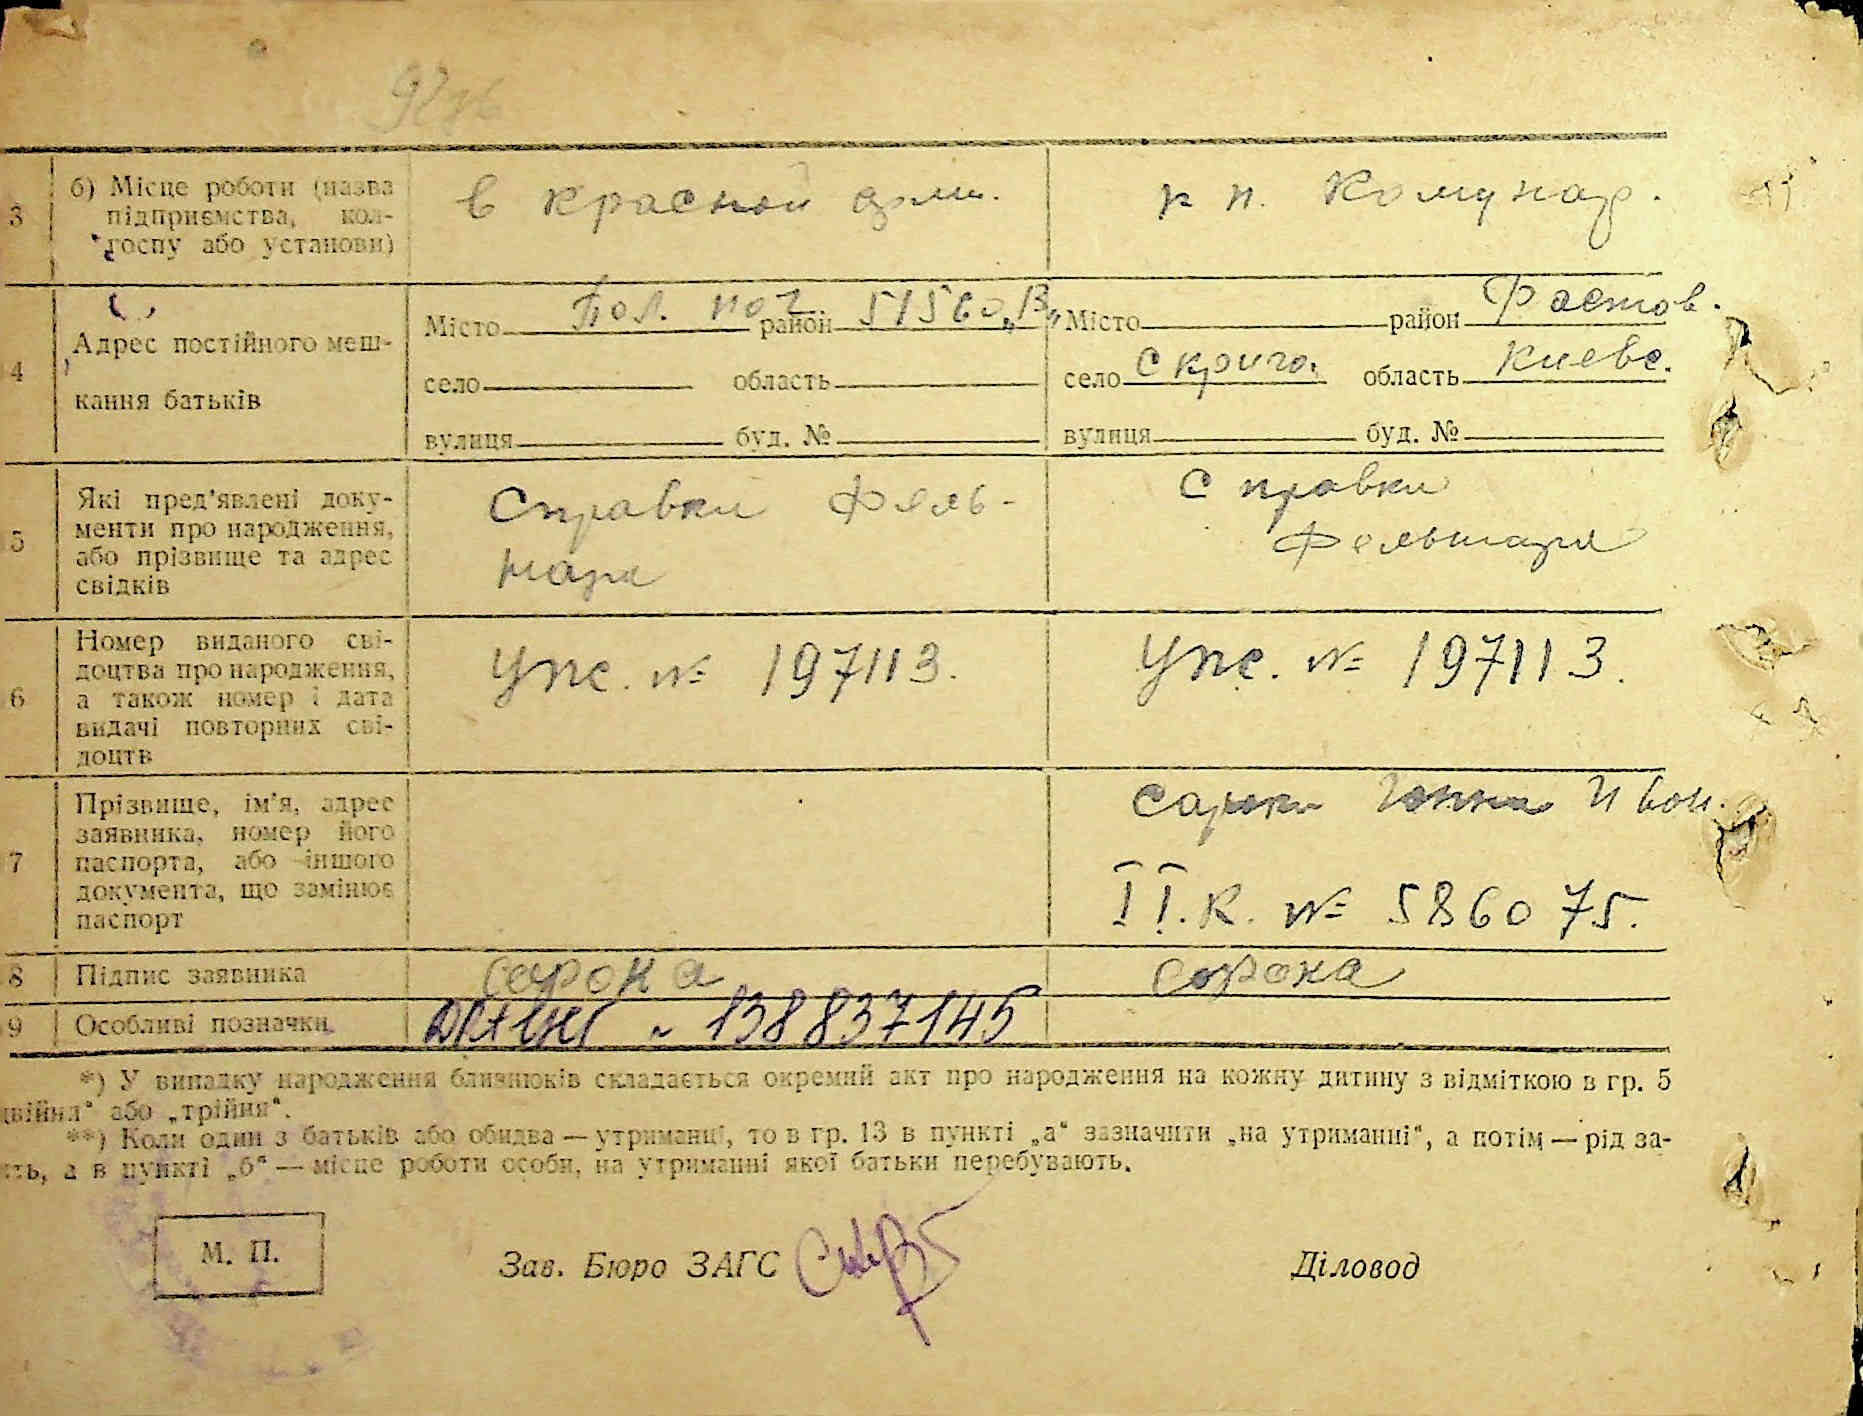 3 б) Місце роботи (назва
підприємства, кол-
госпу або установи)
в красной арми.
к п. Комунар.
4 Адрес постійного меш-
кання батьків
Місто Пол. поч район 51560 „В„
село область
вулиця буд. №
Місто район Фастов.
село Скриго. область Киевс.
вулиця буд. №
5 Які пред'явлені доку-
менти про народження,
або прізвище та адрес
свідків
Справки Фель-
шара
Справки
Фельшара
6 Номер виданого сві-
доцтва про народження,
а також номер і дата
видачі повторних сві-
доцтв
Упс. № 197113.
Упс. № 197113.
7 Прізвище, ім'я, адрес
заявника, номер його
паспорта, або іншого
документа, що замінює
паспорт
Сорока Ганна Иван.
II.К. № 586075.
8 Підпис заявника
сорока
сорока
9 Особливі позначки
138837145
*) У випадку народження близнюків складається окремий акт про народження на кожну дитину з відміткою в гр. 5
двійня" або „трійня".
**) Коли один з батьків або обидва — утриманці, то в гр. 13 в пункті „а" зазначити „на утриманні", а потім — рід за-
ть, а в пункті „б" — місце роботи особи, на утриманні якої батьки перебувають.
М. П.
Зав. Бюро ЗАГС
Діловод